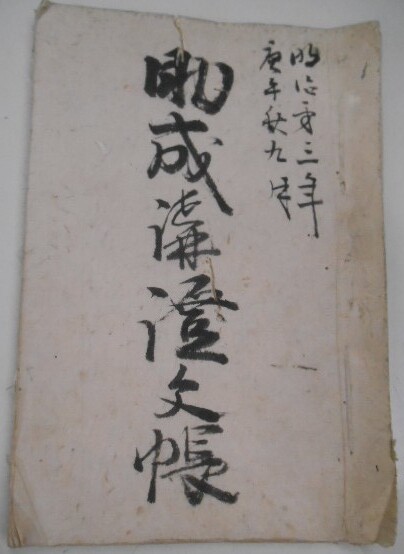 明治第三年
庚午秋九月
助成講證文帳